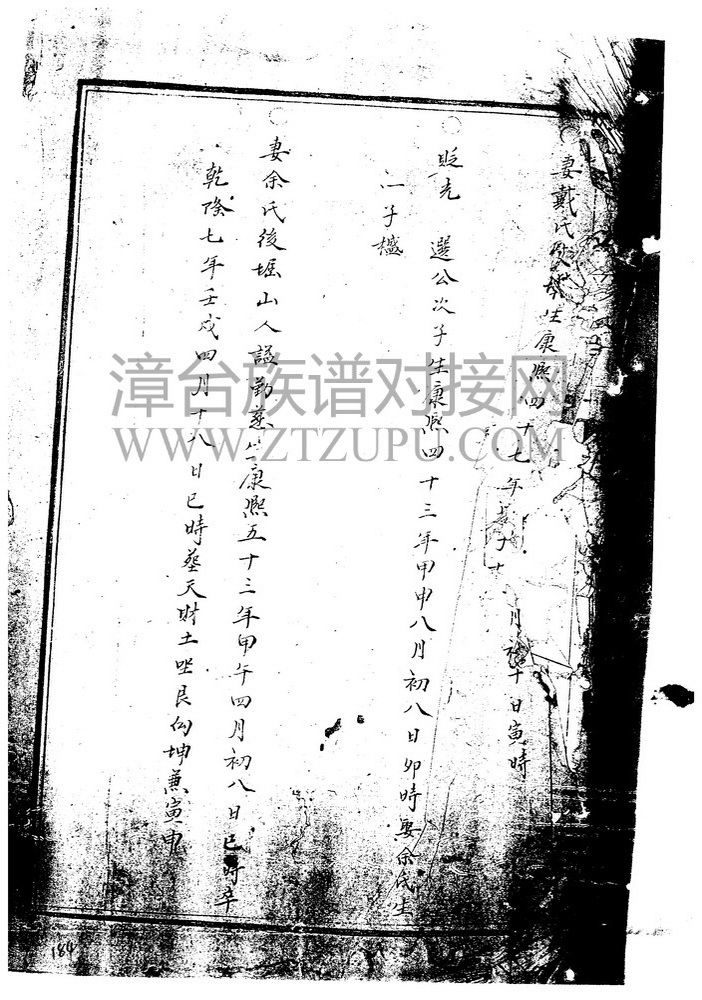 妻戴氏 生康熙四十七年 十 月初十日寅時
貶光 選公次子生康熙四十三年甲申八月初八日卯時娶余氏生
一子櫨
妻余氏後堀山人諡勤慈生康熙五十三年甲午四月初八日巳時卒
乾隆七年壬戌四月十八日巳時葬天財土坐艮向坤兼寅申
漳台族谱对接网
WWW.ZTZUPU.COM
184